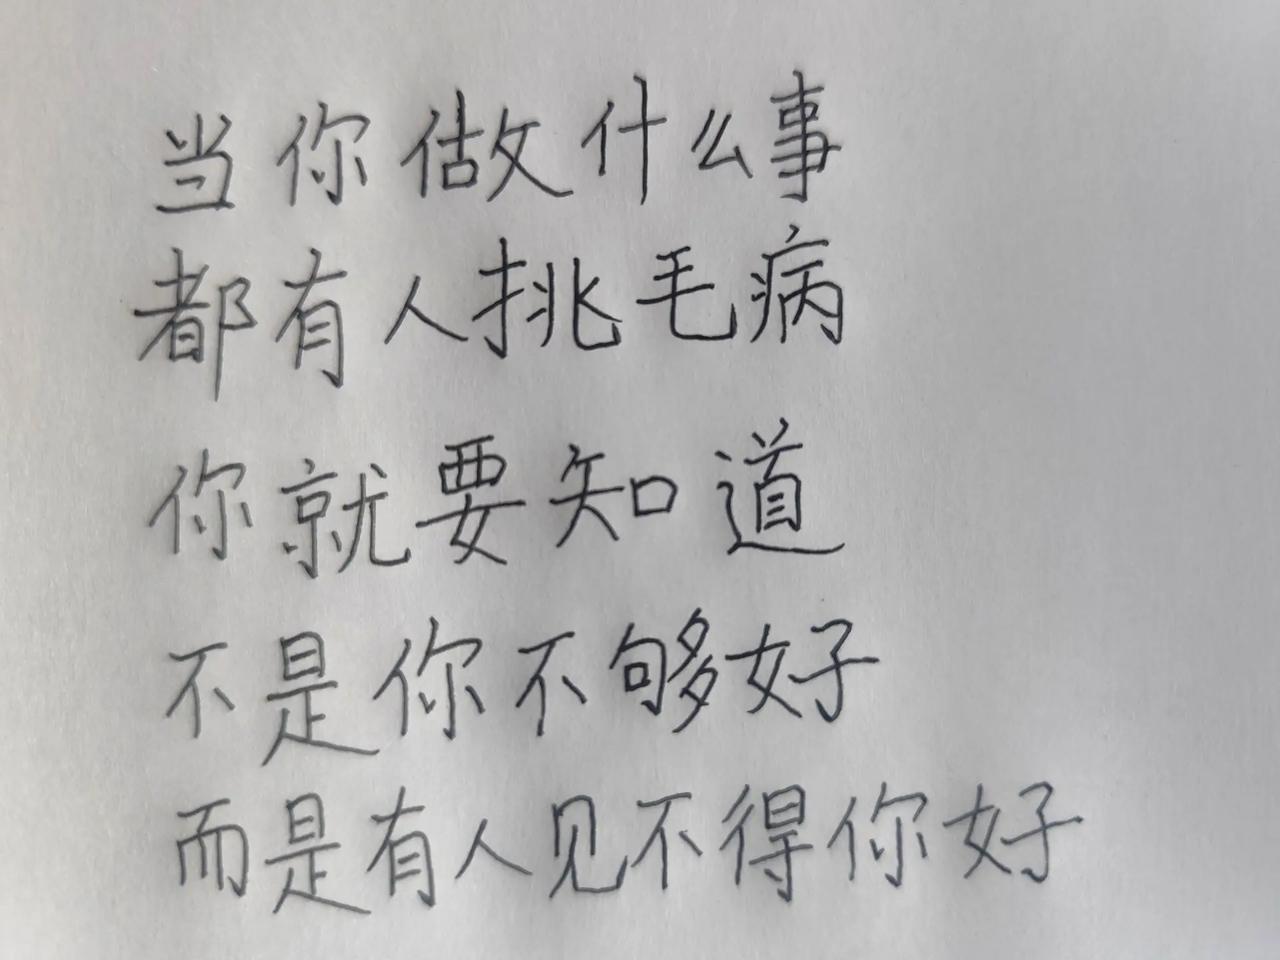 当你做什么事
都有人挑毛病
你就要知道
不是你不够好
而是有人见不得你好